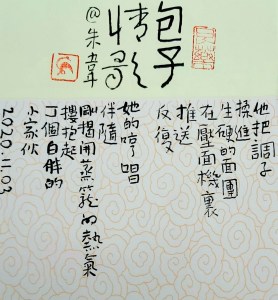 包子
情歌
@朱韋
他把調子
揉進
生硬的面團
在壓面機裏
推送
反復
她的哼唱
伴隨
剛揭開蒸籠的熱氣
摟抱起
一個個白胖的
小家伙
2020.11.03